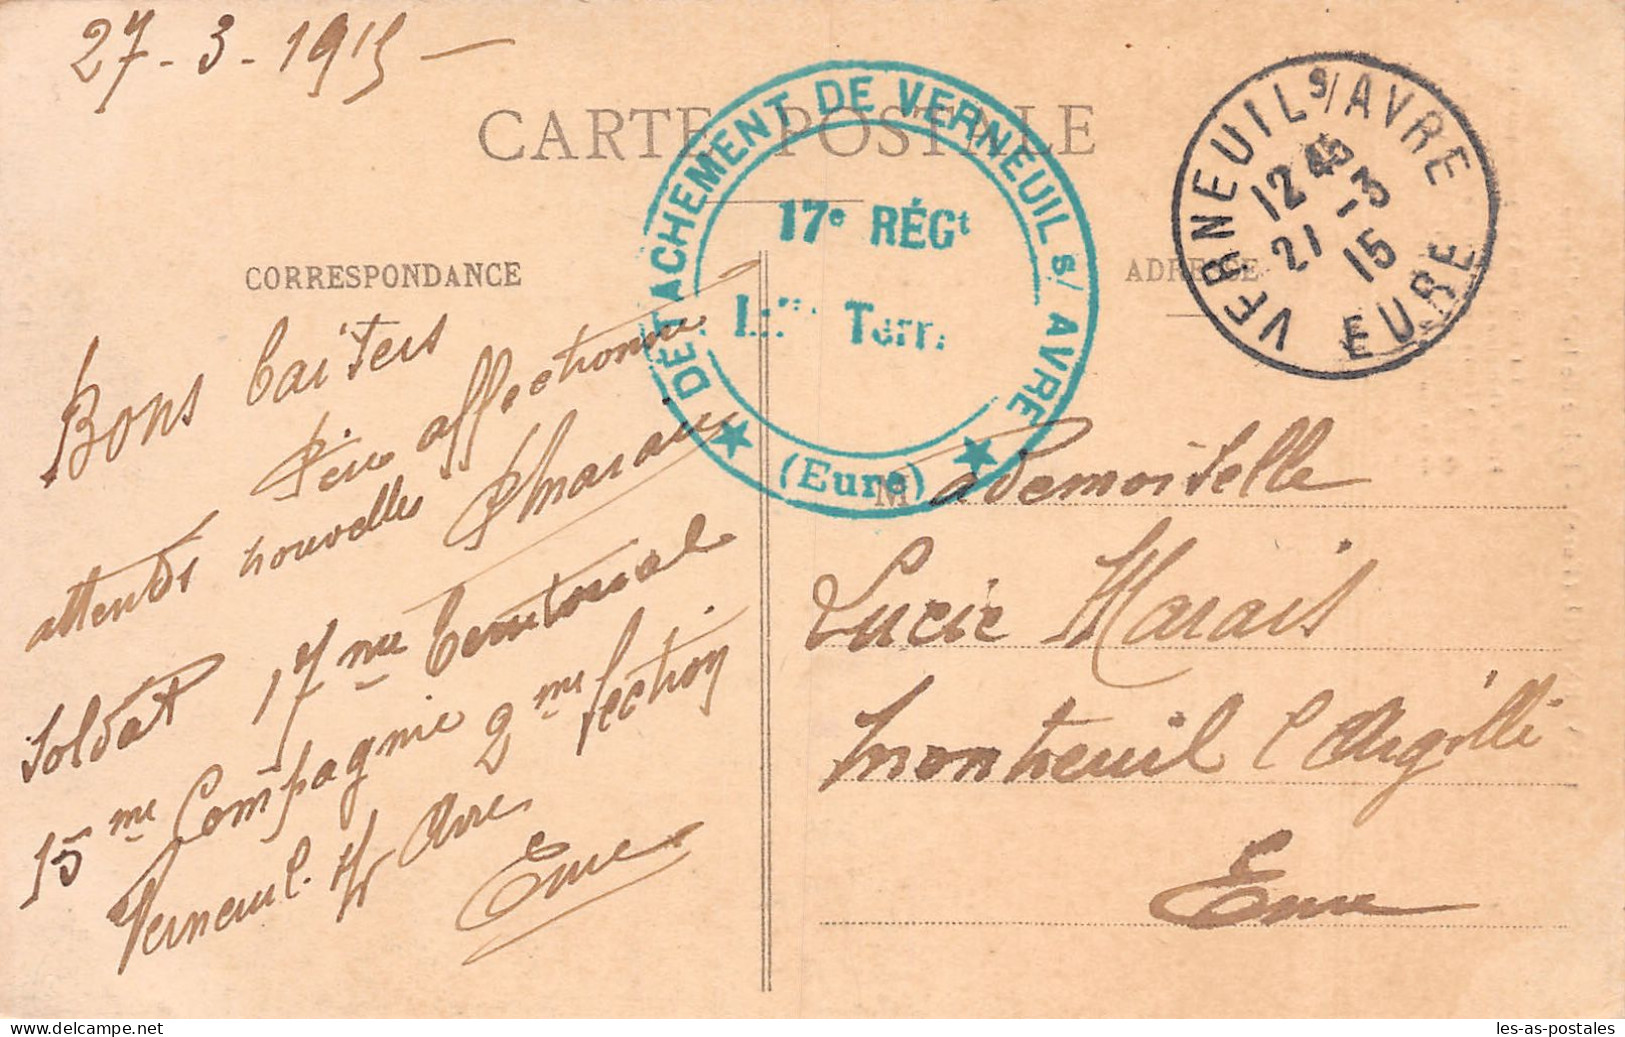 27-3-1915 —
CARTE POSTALE
DÉTACHEMENT DE VERNEUIL s/ AVRE
17e RÉGt
Terr.
(Eure)
VERNEUIL s/ AVRE
12 45
21 -3
15
EURE
CORRESPONDANCE
ADRESSE
Bons baisers
Père affectionné
attends nouvelles
Soldat 17me Territorial
15me Compagnie 2me Section
Verneuil s/ Avre
Eure
Mademoiselle
Lucie Marais
Montreuil l'Argillé
Eure
22/04/2025
les-as-postales